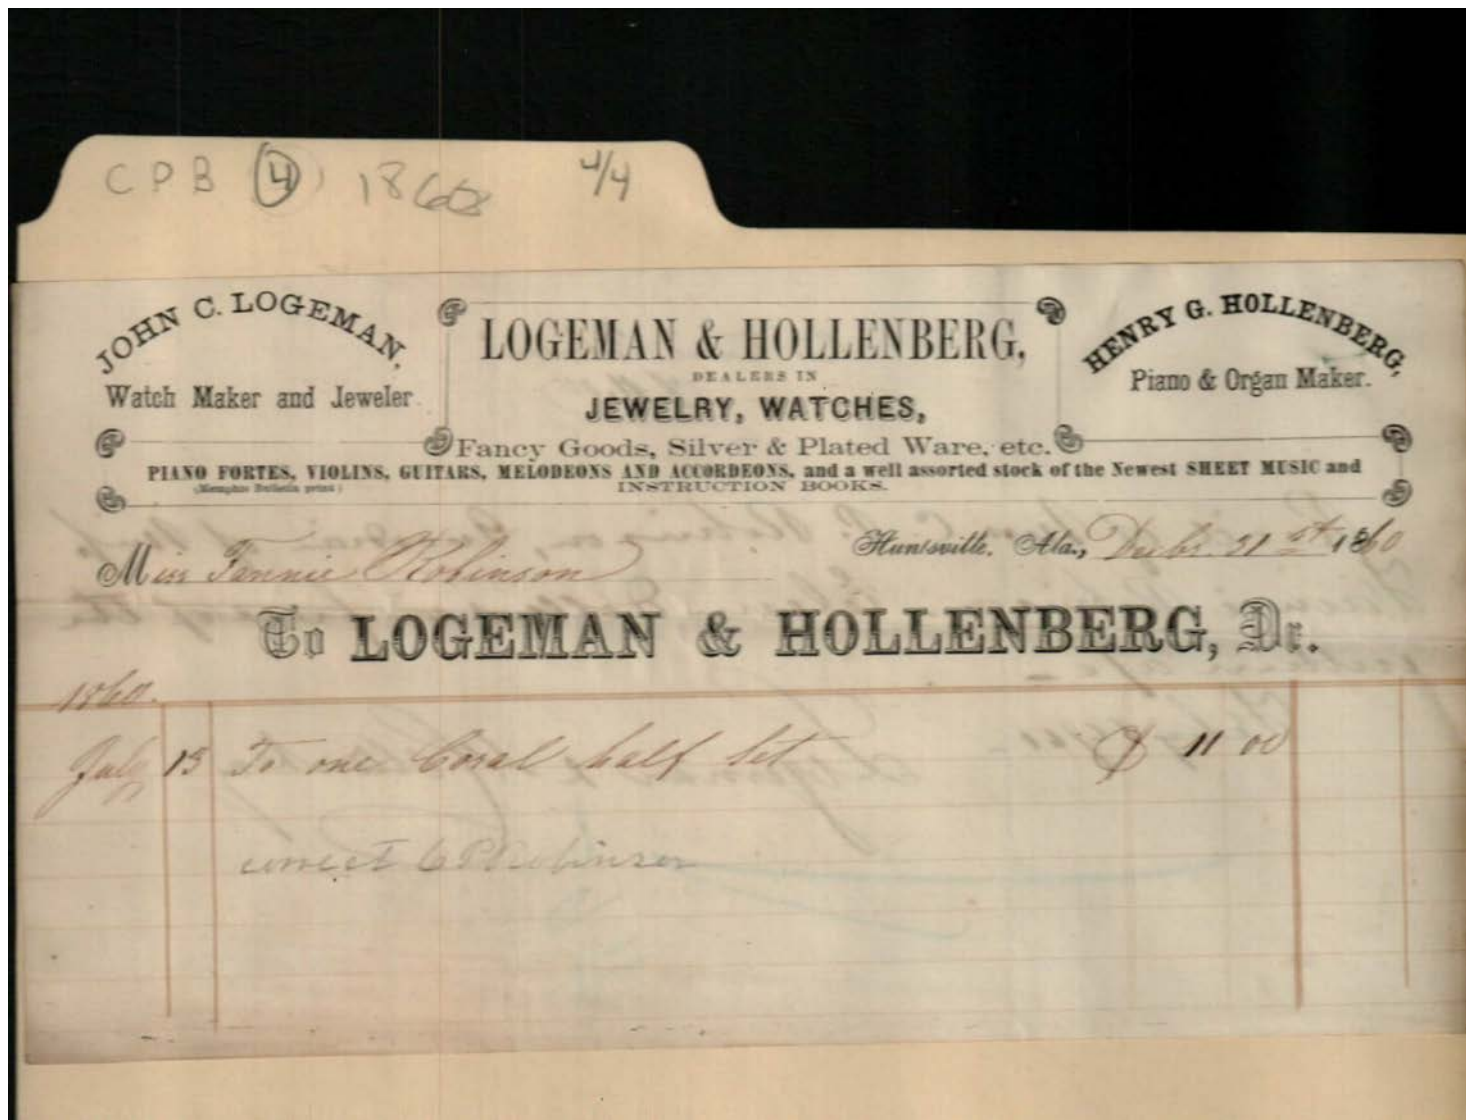 CPB 4 1860 4/4
JOHN C. LOGEMAN,
Watch Maker and Jeweler.
LOGEMAN & HOLLENBERG,
DEALERS IN
JEWELRY, WATCHES,
Fancy Goods, Silver & Plated Ware, etc.
HENRY G. HOLLENBERG,
Piano & Organ Maker.
PIANO FORTES, VIOLINS, GUITARS, MELODEONS AND ACCORDEONS, and a well assorted stock of the Newest SHEET MUSIC and
(Memphis Bulletin print)
INSTRUCTION BOOKS.
Huntsville, Ala., Decbr. 31st 1860
Miss Fannie Robinson
To LOGEMAN & HOLLENBERG, Dr.
1860.
July 13 To one Coral half Set $ 11 00
correct C P Robinson